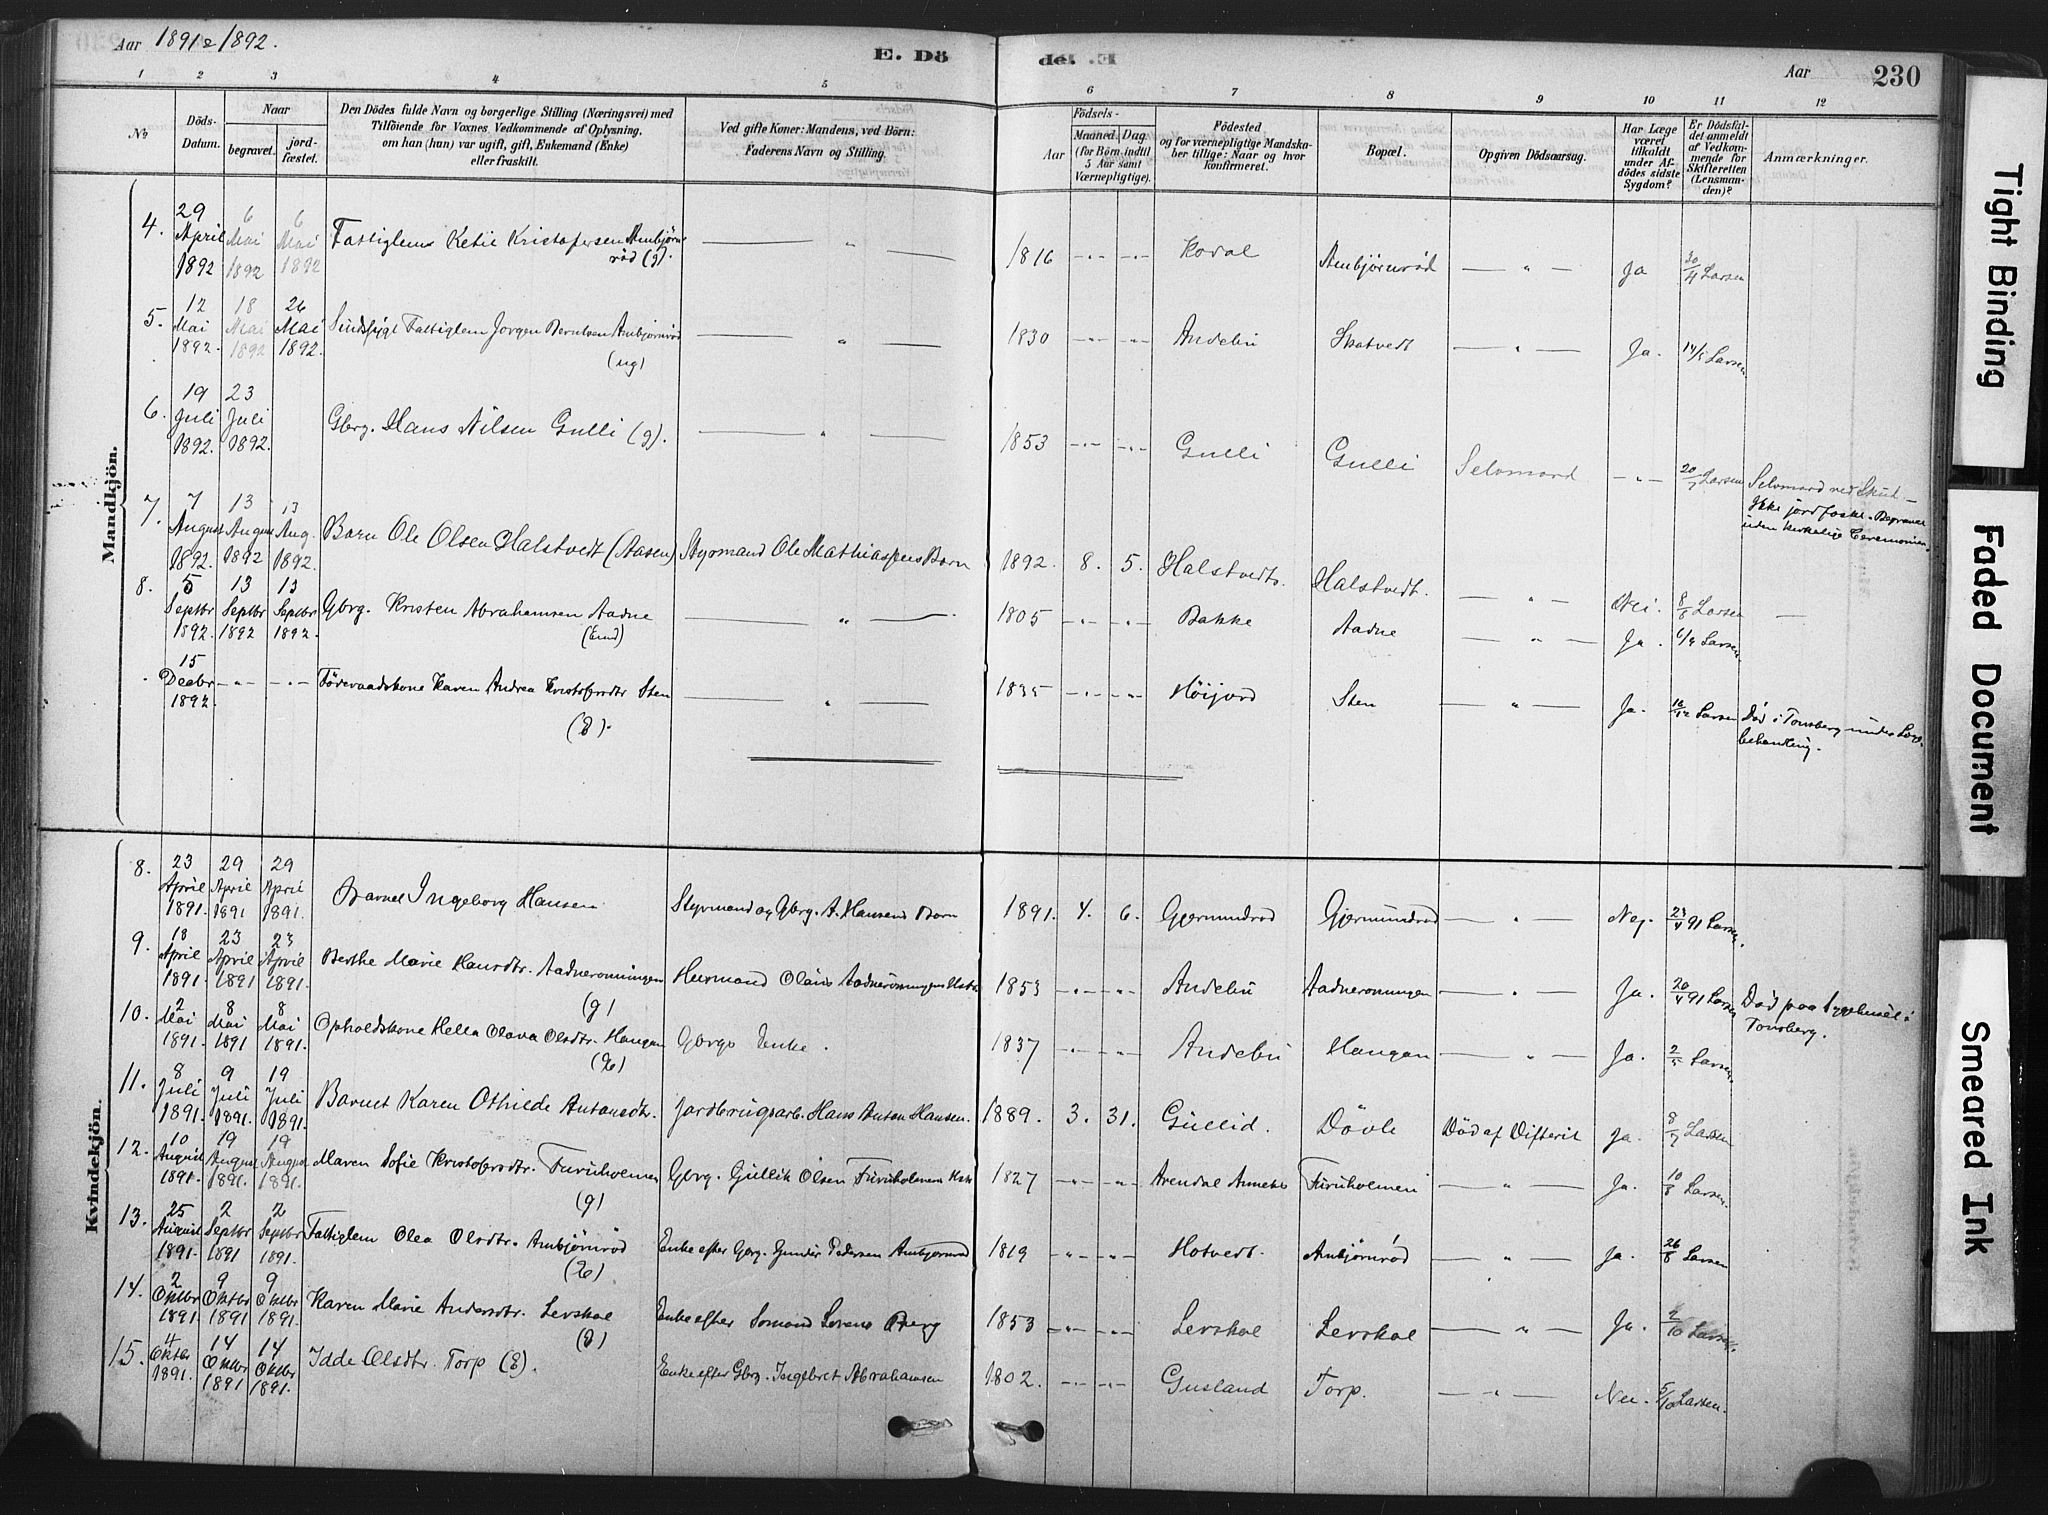 Aar 1891 & 1892.
E. Dö
de. E
Aar
230
1 2 3 4 5 6 7 8 9 10 11 12
No
Döds-Datum.
Naar
begravet.
jord-fæstet.
Den Dödes fulde Navn og borgerlige Stilling (Næringsvei) med
Tilföiende for Voxnes Vedkommende af Oplysning,
om han (hun) var ugift, gift, Enkemand (Enke)
eller fraskilt.
Ved gifte Koner: Mandens, ved Börn:
Faderens Navn og Stilling.
Födsels-
Aar
Maaned. Dag.
(for Börn indtil
5 Aar samt
Værnepligtige).
Födested
og for værnepligtige Mandska-
ber tillige: Naar og hvor
konfirmeret.
Bopæl.
Opgiven Dödsaarsag.
Har Læge
været
tilkaldt
under Af-
dödes sidste
Sygdom?
Er Dödsfal-
det anmeldt
af Vedkom-
mende for
Skifteretten
(Lensman-
den)?
Anmærkninger.
Mandkjön.
4. 29 April 1892 6 Mai 1892 6 Mai 1892 Fattiglem Ketil Kristofersen Ambjørnrød (g). 1816 Kodal Ambjørnrød Ja 30/4 Larsen
5. 12 Mai 1892. 18 Mai 1892 26 Mai 1892. Sindssygt Fattiglem Jørgen Berntsen Ambjørnrød (ug) 1830 Andebu Skatvedt Ja. 14/5 Larsen.
6. 19 Juli 1892. 23 Juli 1892. Gbrg. Hans Nilsen Gulli (g). 1853 Gulli Gulli Selvmord 20/7 Larsen Selvmord ved Skud.
Ikke jordfæstet. Begravet
uden kirkelige Ceremonier.
7. 7 August 1892. 13 August 1892 13 Aug. 1892. Barn Ole Olsen Halstvedt (Aasen) Styrmand Ole Mathiassens Barn 1892. 8. 5. Halstvedt. Halstvedt. Nei. 8/8 Larsen
8. 5 Septbr 1892. 13 Septbr 1892 13 Septbr 1892. Gbrg. Kristen Abrahamsen Aadne (Emd) 1805 Bakke Aadne Ja. 6/9 Larsen.
15 Decbr 1892. Föderaadskone Karen Andrea Kristofersdtr Sten (E). 1835 Höijord Sten Ja. 16/12 Larsen Död i Tønsberg under Læge-
behandling.
Kvindekjön.
8. 23 April 1891. 29 April 1891 29 April 1891. Barnet Ingeborg Hansen Styrmand og Gbrg. A. Hansens Barn 1891. 4. 6. Gjermundrød Gjermundrød Nej. 23/4 91 Larsen.
9. 18 April 1891. 23 April 1891 23 April 1891. Berthe Marie Hansdtr. Aadnerønningen (g) Husmand Olaus Aadnerønningens Hustru 1853 Andebu Aadnerønningen Ja. 20/4 91 Larsen Död paa Sygehuset i
Tønsberg.
10. 2 Mai 1891. 8 Mai 1891 8 Mai 1891. Opholdskone Hella Olava Olsdtr. Haugan (E) Gbrgs Enke. 1837 Andebu Haugan Ja. 2/5 Larsen.
11. 8 Juli 1891. 9 Juli 1891. 19 Juli 1891. Barnet Karen Othilde Antonsdtr. Jordbrugsarb. Hans Anton Hansen. 1889. 3. 31. Gullid. Dövle Död af Difterit Ja. 8/7 Larsen
12. 10 August 1891. 19 August 1891. 19 August 1891. Maren Sofie Kristofersdtr. Furuholmen (g) Gbrg. Gullik Olsen Furuholmens Hstr 1827 Arendal Furuholmen Ja. 10/8 Larsen.
13. 25 August 1891. 2 Septbr 1891 2 Septbr 1891. Fattiglem Olea Olsdtr. Ambjörnröd (E) Enke efter Gbrg. Gunder Pedersen Ambjørnrød 1819 Hotvedt. Ambjörnröd Ja. 26/8 Larsen
14. 2 Oktbr 1891. 9 Oktbr 1891 9 Oktbr 1891. Karen Marie Andersdtr. Levskal (E) Enke efter Sömand Sörens Berg 1853 Levskal Levskal Ja. 2/10 Larsen.
15. 4 Oktbr 1891. 14 Oktbr 1891 14 Oktbr 1891. Idde Olsdtr. Torp (E). Enke efter Gbrg. Ingebret Abrahamsen 1802. Gusland Torp. Nei. 5/10 Larsen.
Tight Binding
Faded Document
Smeared Ink